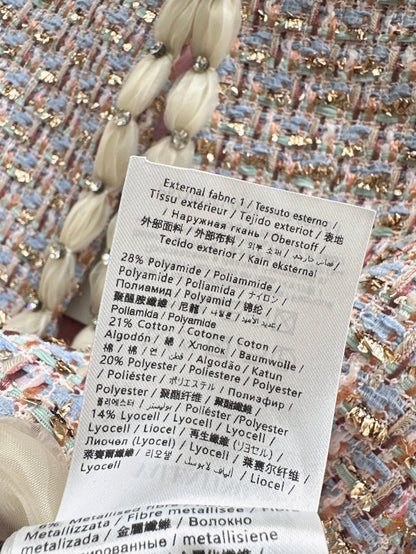 External fabric 1 / Tessuto esterno /
Tissu extérieur / Tejido exterior / 表地
/ Наружная ткань / Oberstoff /
外部面料 / 外部布料 / 외부 소재 /
Tecido exterior / Kain eksternal
28% Polyamide / Poliammide /
Polyamide / Poliamida / ナイロン /
Полиамид / Polyamid / 锦纶 /
聚醯胺纖維 / 尼龍 / 나일론 /
Poliamida / Polyamide
21% Cotton / Cotone / Coton /
Algodón / 綿 / Хлопок / Baumwolle /
棉 / 棉 / 면 / قطن / Algodão / Katun
20% Polyester / Poliestere / Polyester
/ Poliéster / ポリエステル / Полиэфир /
Polyester / 聚酯纤维 / 聚酯纖維 /
폴리에스터 / بوليستر / Poliéster/Polyester
14% Lyocell / Lyocell / Lyocell /
Lyocell / Liocel / 再生繊維 (リヨセル) /
Лиочел (Lyocell) / Lyocell / 莱赛尔纤维 /
萊賽爾纖維 / 리오셀 / ألياف لايوسل / Liocel /
Lyocell
6% Metallised fibre
Metallizzata / Fibre métallisée / Fibra
metalizada / 金属繊維 / Волокно
металлизированные / metallisiene